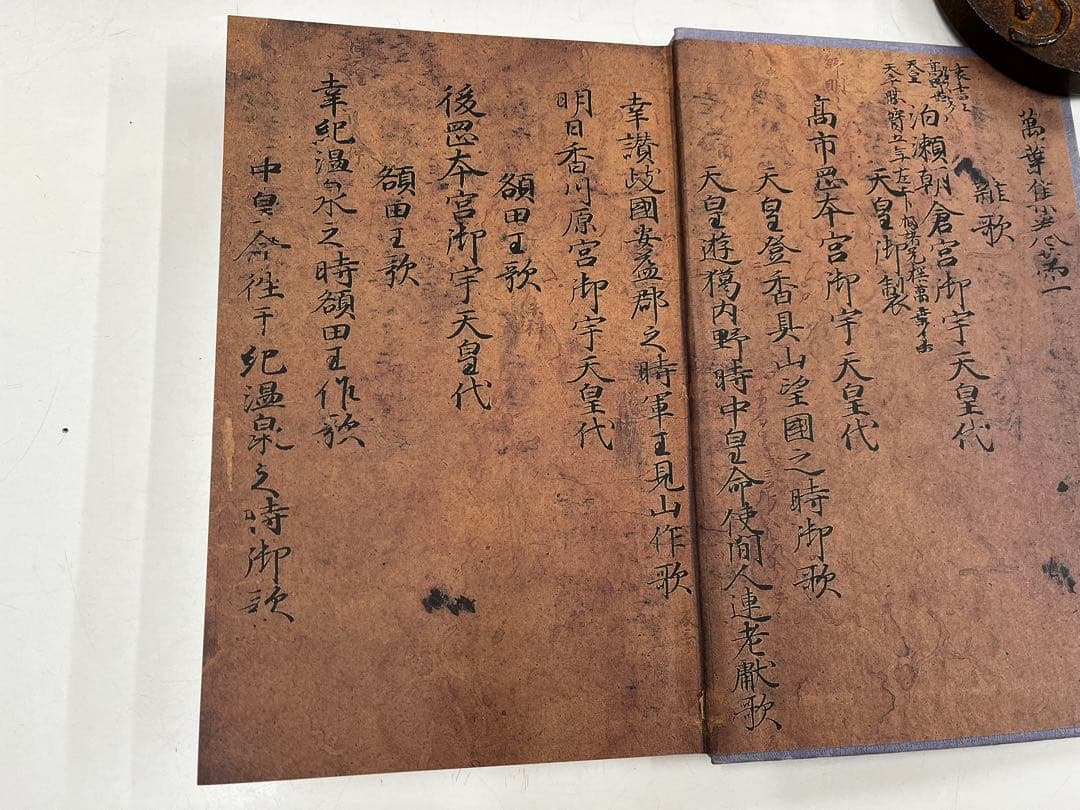 萬葉集巻第一
雜歌
泊瀬朝倉宮御宇天皇代
天皇御製
高市罡本宮御宇天皇代
天皇登香具山望國之時御歌
天皇遊獦内野時中皇命使間人連老獻歌
幸讃岐國安益郡之時軍王見山作歌
明日香川原宮御宇天皇代
額田王歌
後罡本宮御宇天皇代
額田王歌
幸紀温泉之時額田王作歌
中皇命徃于紀温泉之時御歌